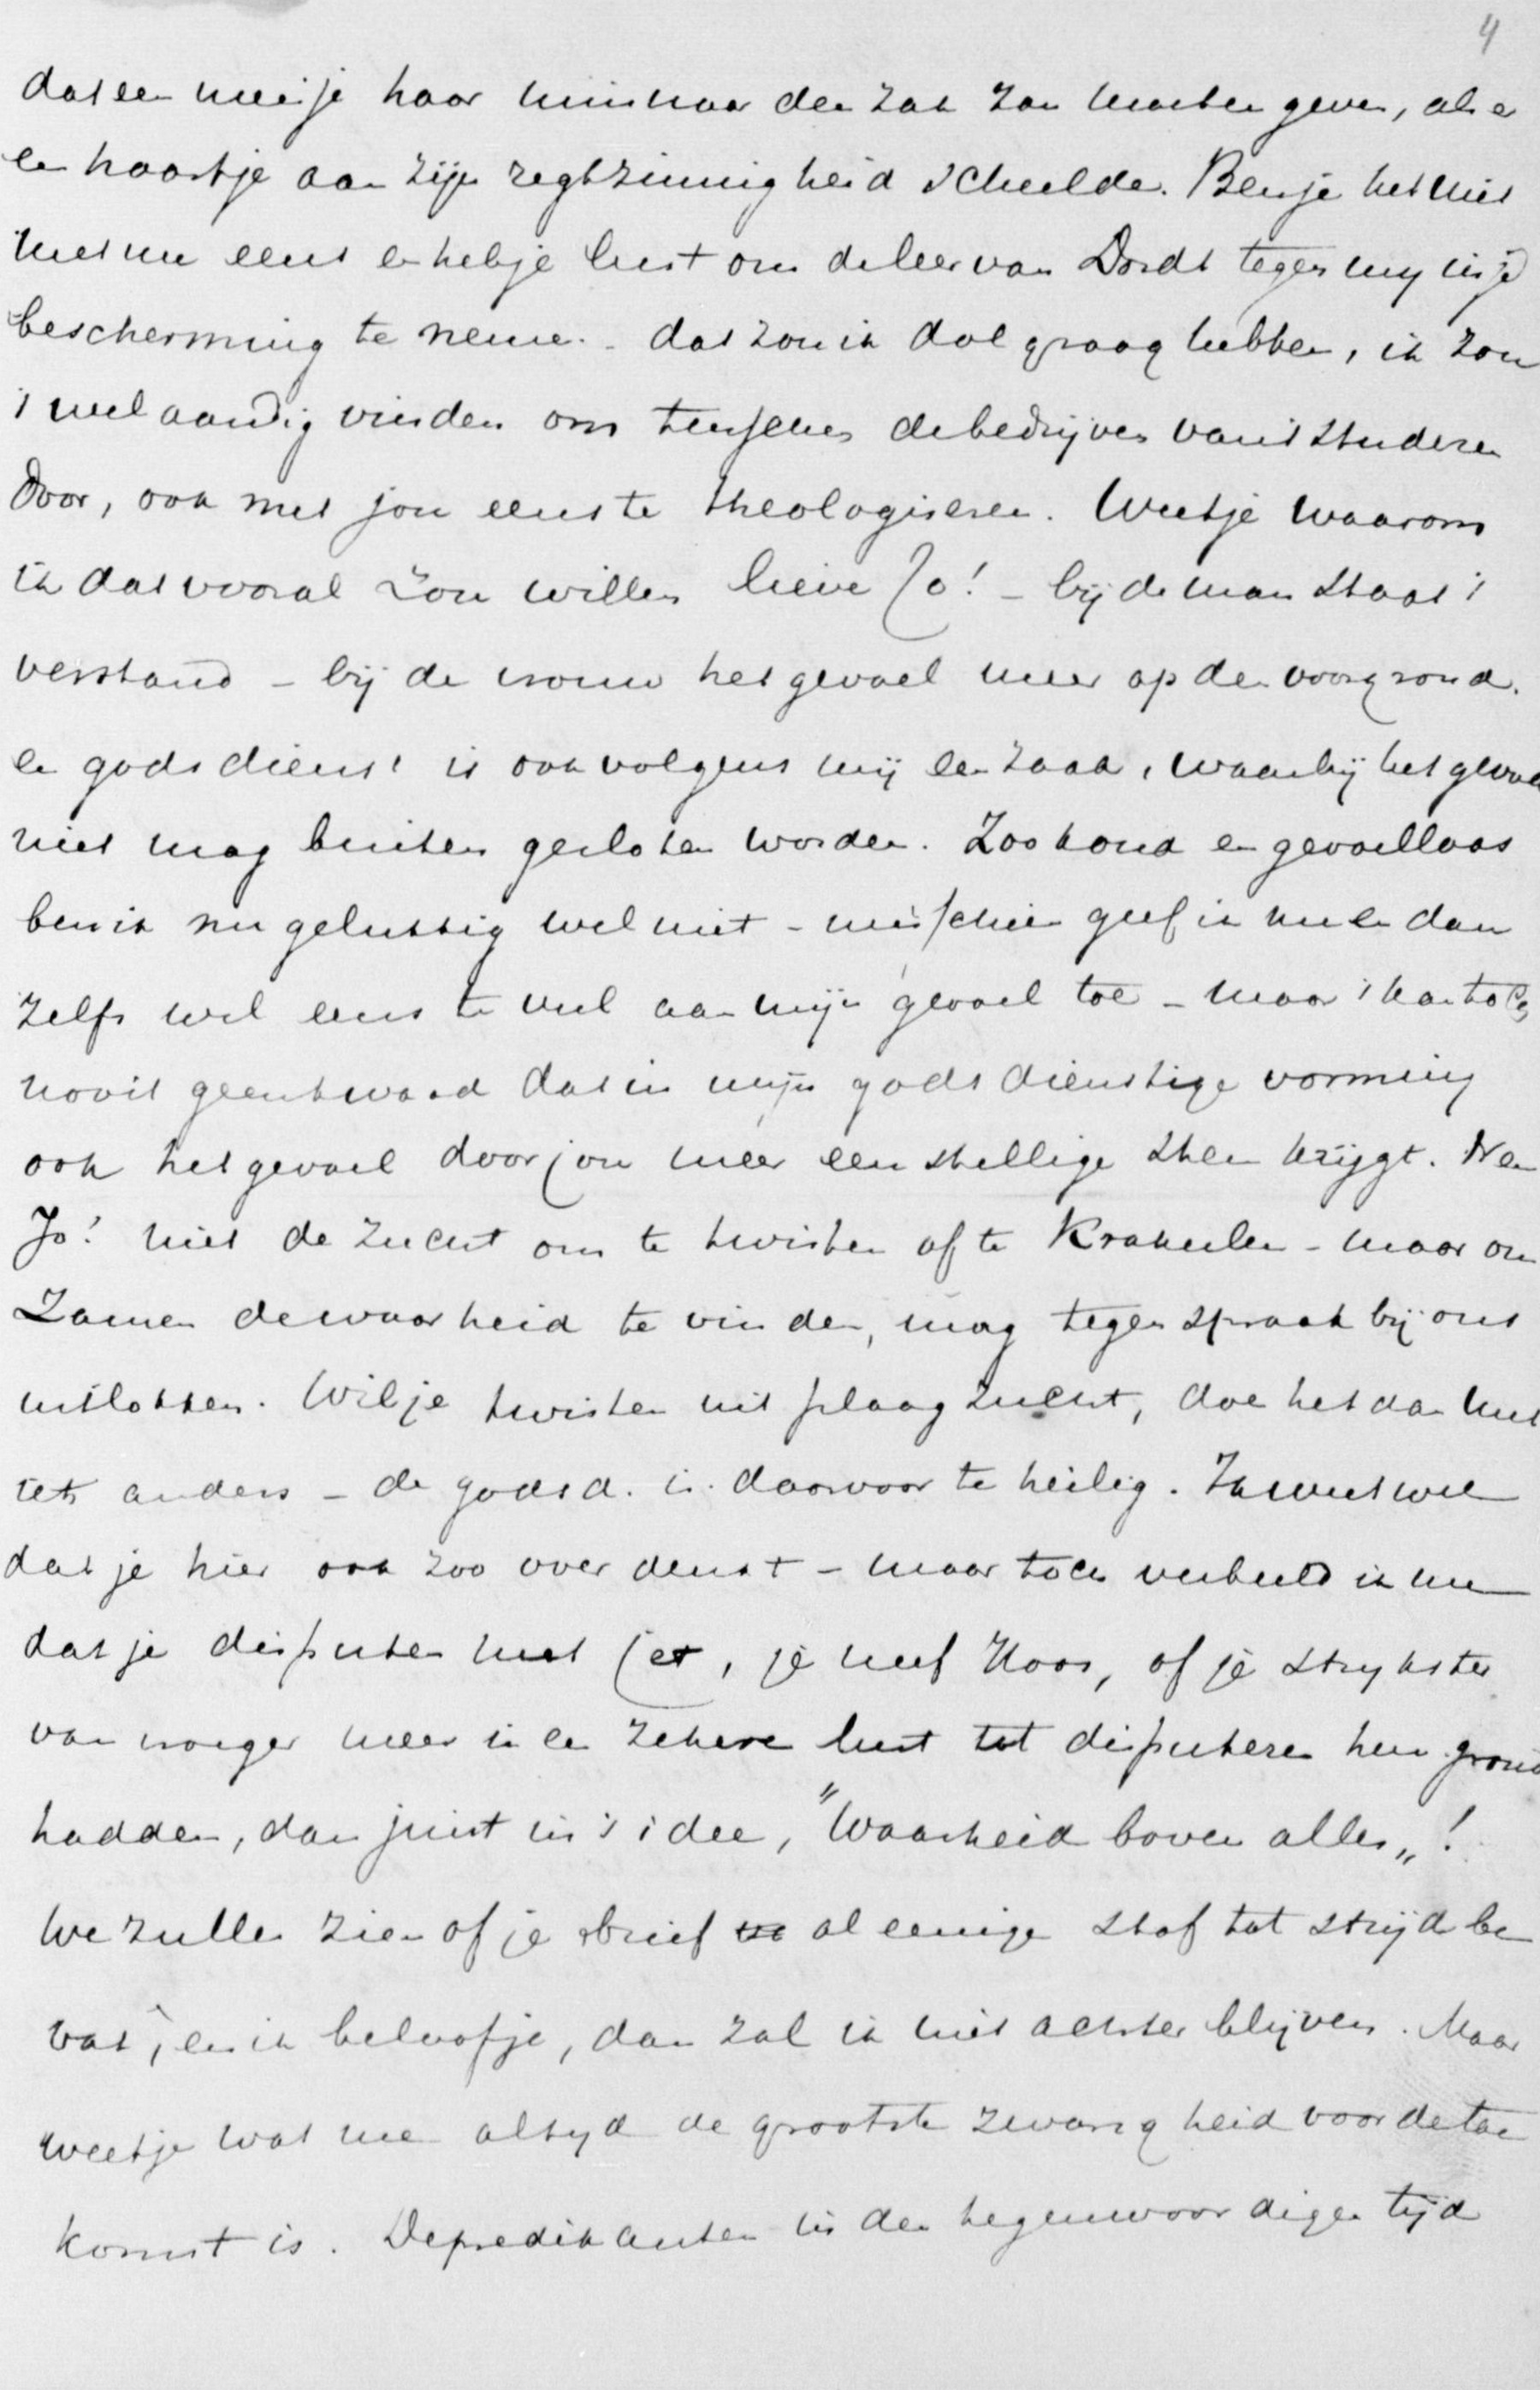 4
dat een meisje haar minnaar den zak zou moeten geven, als er
een haartje aan zijn regtzinnigheid scheelde. Ben je het niet
met me eens en heb je lust om de leer van Dordt tegen my in je
bescherming te nemen - dat zou ik dol graag hebben, ik zou
't wel aardig vinden om tusschen de bedrijven van 't studeren
door, ook met jou eens te theologiseren. Weet je waarom
ik dat vooral zou willen lieve Jo! - bij de man staat 't
verstand - bij de vrouw het gevoel meer op den voorgrond.
en godsdienst is ook volgens mij een zaak, waarbij het gevoel
niet mag buiten gesloten worden. Zoo koud en gevoelloos
ben ik nu gelukkig wel niet - misschien geef ik nu en dan
zelfs wel eens te veel aan mijn gevoel toe - maar 't kan toch
nooit geen kwaad dat in mijn godsdienstige vorming
ook het gevoel door jou meer een stellige stem krijgt. Neen
Jo! niet de zucht om te twisten of te krakeelen - maar om
zamen de waarheid te vinden, mag tegenspraak bij ons
uitlokken. Wil je twisten uit plaagzucht, doe het dan met
iets anders - de godsd. is daarvoor te heilig. Ik weet wel
dat je hier ook zoo over denkt - maar toch verbeeld ik me
dat je disputen met Jet, je neef Koos, of je strykster
van vroeger meer in een zekere lust tot disputeren hun grond
hadden, dan juist in 't idee, "Waarheid boven alles„!
We zullen zien of je brief al eenige stof tot strijd be
vat, en ik beloof je, dan zal ik niet achter blijven. Maar
weet je wat me altyd de grootste zwarigheid voor de toe
komst is. De predikanten in den tegenwoordigen tijd